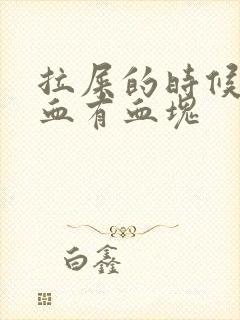 拉屎的时候
血有血块
白鑫